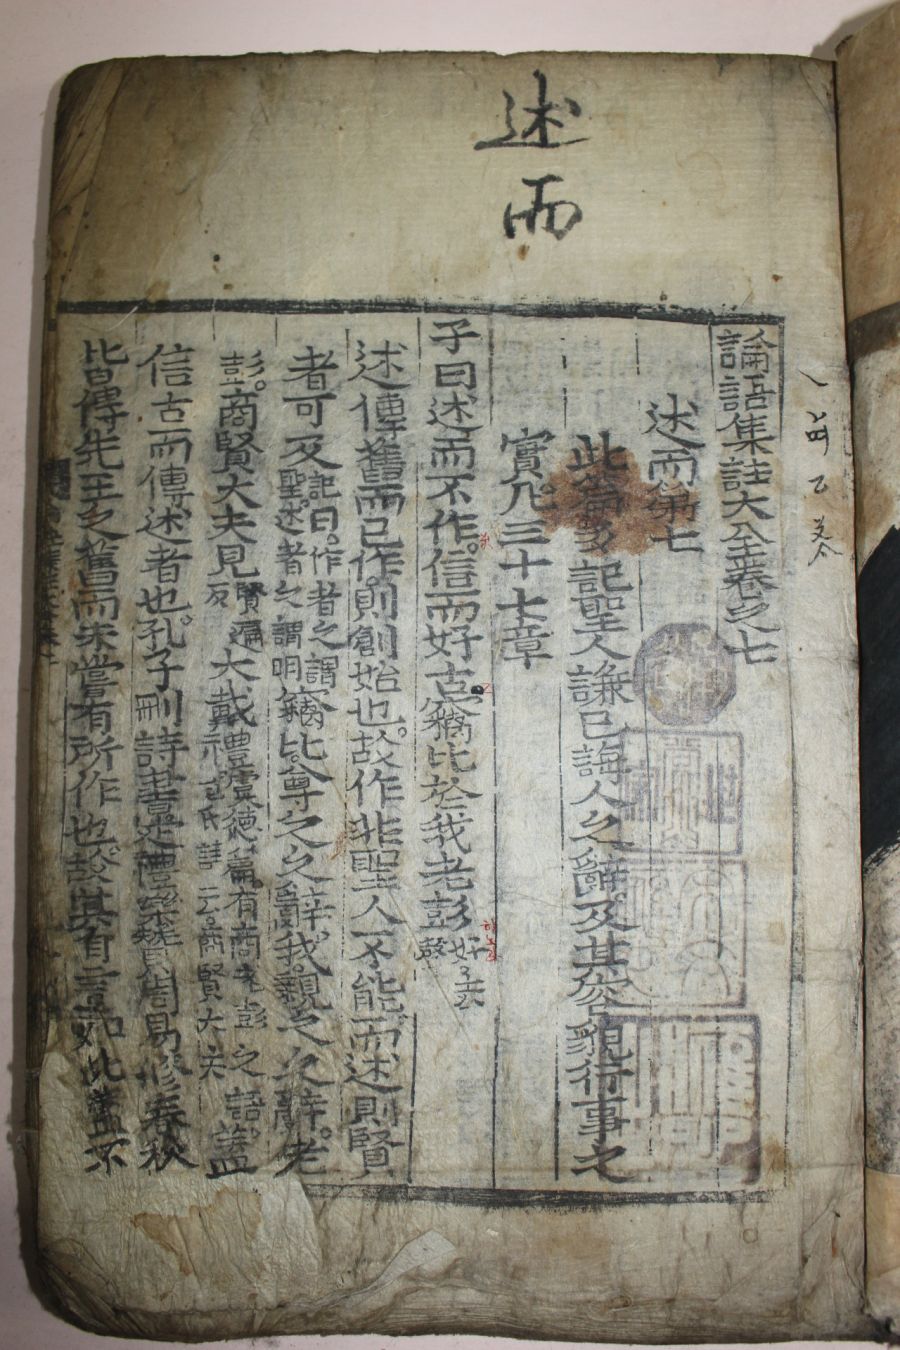 述而
論語集註大全卷之七
述而第七
此篇多記聖人謙己誨人之辭及其容貌行事之
實凡三十七章
子曰述而不作信而好古竊比於我老彭好去聲
述傳舊而已作則創始也故作非聖人不能而述則賢
者可及記曰作者之謂聖述者之謂明竊比尊之之辭我親之之辭老
彭商賢大夫見賢遍反大戴禮虞德篇有商老彭之語註云商賢大夫蓋
信古而傳述者也孔子刪詩書定禮樂贊周易修春秋
皆傳先王之舊而未嘗有所作也故其自言如此蓋不